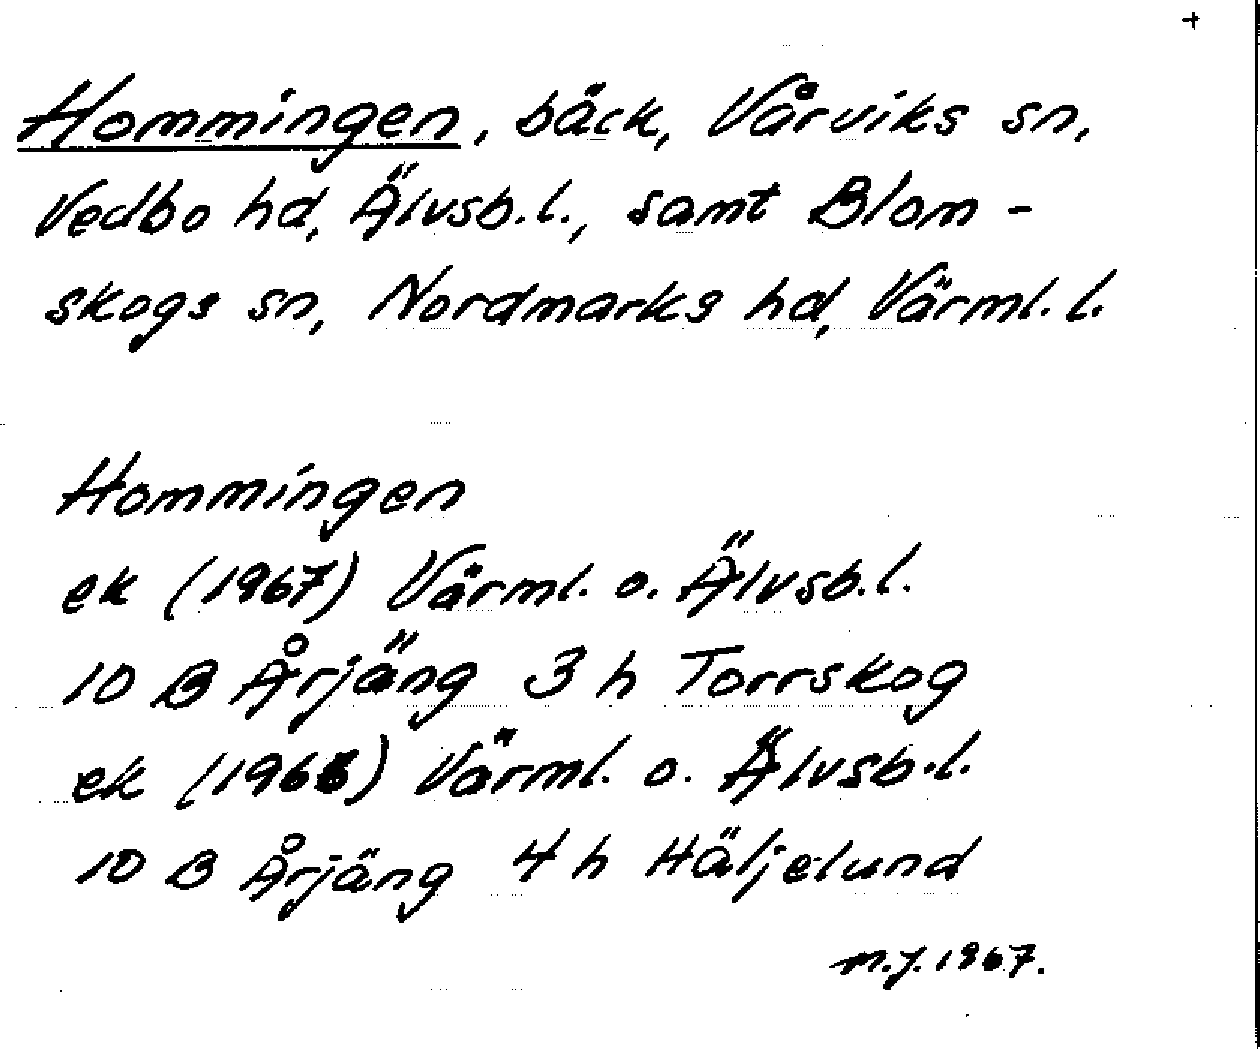 +
Hommingen, bäck, Vårviks sn,
Vedbo hd, Älvsb.l., samt Blom-
skogs sn, Nordmarks hd, Värml. l.
Hommingen
ek (1967) Värml. o. Älvsb.l.
10 B Årjäng 3 h Torrskog
ek (1966) Värml. o. Älvsb.l.
10 B Årjäng 4 h Häljelund
M.J. 1967.